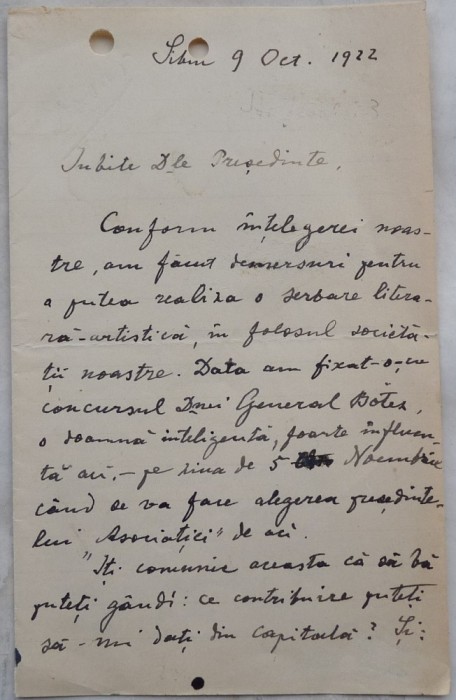 Sibiu 9 Oct. 1922
Iubite Dle Președinte,
Conform înțelegerei noas-
tre, am făcut demersuri pentru
a putea realiza o serbare litera-
ră-artistică, în folosul societă-
ții noastre. Data am fixat-o, cu
concursul Dnei General Botez,
o doamnă inteligentă, foarte influen-
tă aci, – pe ziua de 5 Noembrie
când se va face alegerea președinte-
lui "Asociației" de aci.
"Iți comunic aceasta ca să vă
puteți gândi: ce contribuire puteți
să-mi dați din capitală? Și: